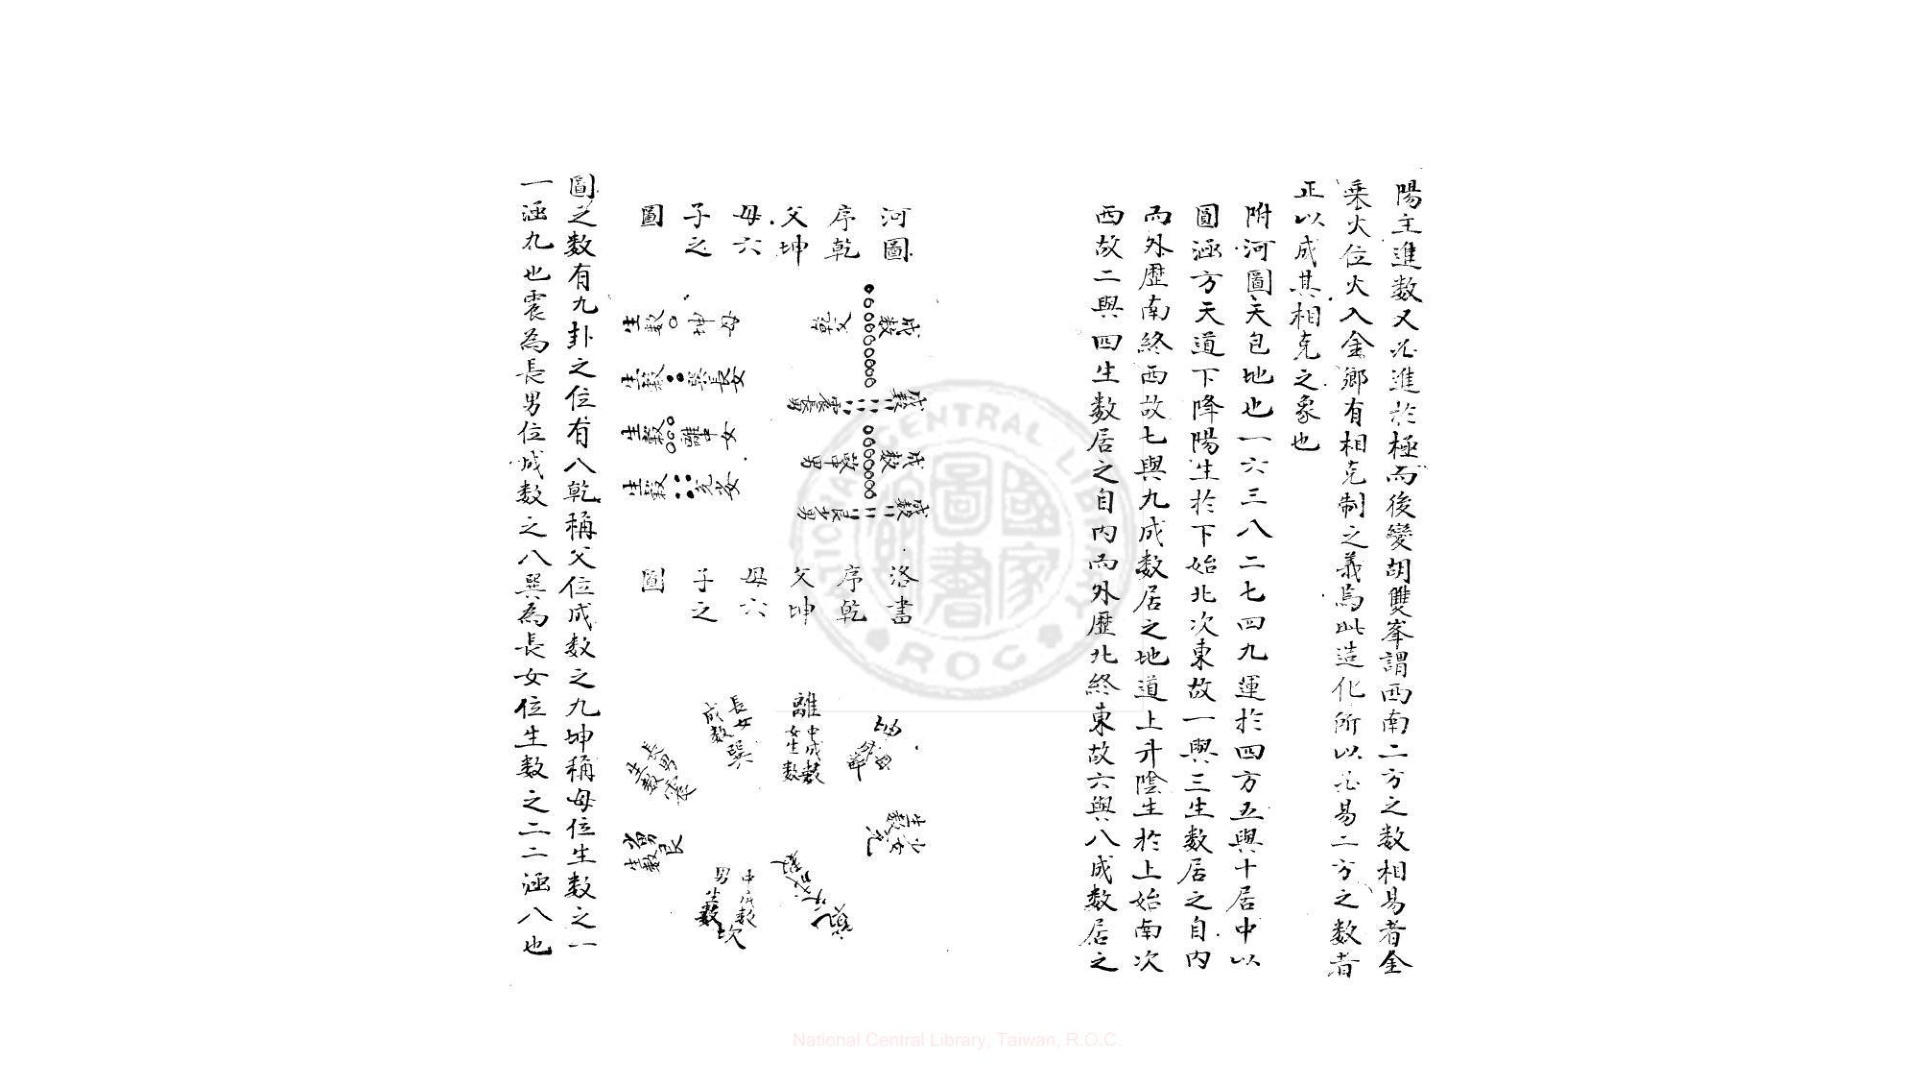 陽主進数又必進於極而後變胡雙峯謂西南二方之数相易者金
乘火位火入金鄉有相克制之義焉此造化所以必易二方之数者
正以成其相克之象也
附河圖天包地也一六三八二七四九運於四方五與十居中以
圖涵方天道下降陽生於下始北次東故一與三生数居之自内
而外歷南終西故七與九成数居之地道上升陰生於上始南次
西故二與四生数居之自内而外歷北終東故六與八成数居之
河圖
序乾
父坤
母六
子之
圖
成数
乾父
成数
震長男
成数
中男
成数
艮少男
母坤
生数
長女巽
生数
中女離
生数
少女兌
生数
洛書
序乾
父坤
母六
子之
圖
坤母
離
中成数
女生数
長女巽
成数
長男震
生数
少女兌
生数
少男艮
生数
中成数
男生数
坎
圖之数有九卦之位有八乾稱父位成数之九坤稱母位生数之一
一涵九也震為長男位成数之八巽為長女位生数之二二涵八也
National Central Library, Taiwan, R.O.C.